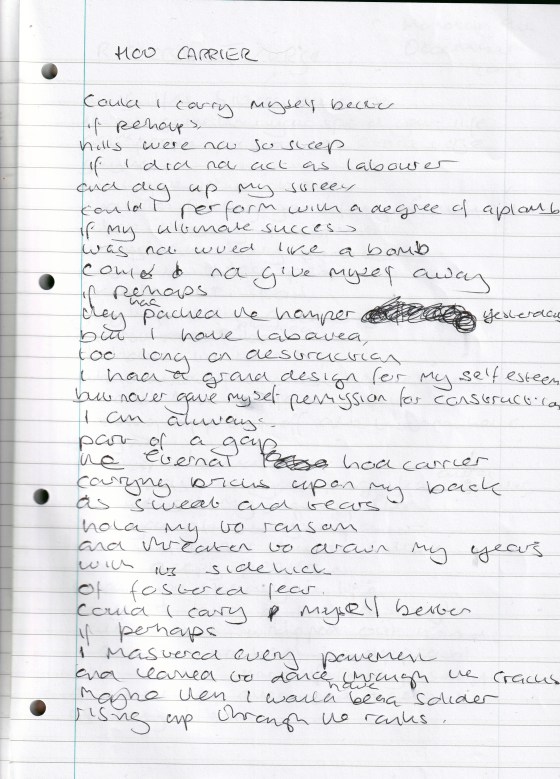 HOD CARRIER
Could I carry myself better
if perhaps
hills were not so steep
if I did not act as labourer
and dig up my street
could I perform with a degree of aplomb
if my ultimate success
was not wired like a bomb
could I not give myself away
if perhaps
they had packed the hamper yesterday
but I have laboured
too long on destruction
I had a grand design for my self esteem
but never gave myself permission for construction
I am always
part of a gap
the eternal hod carrier
carrying bricks upon my back
as sweat and tears
hold my to ransom
and threaten to drown my years
with its sidekick
of fostered fear.
Could I carry myself better
if perhaps
I mastered every pavement
and learned to dance through the cracks
maybe then I would have been a solider
rising up through the ranks.